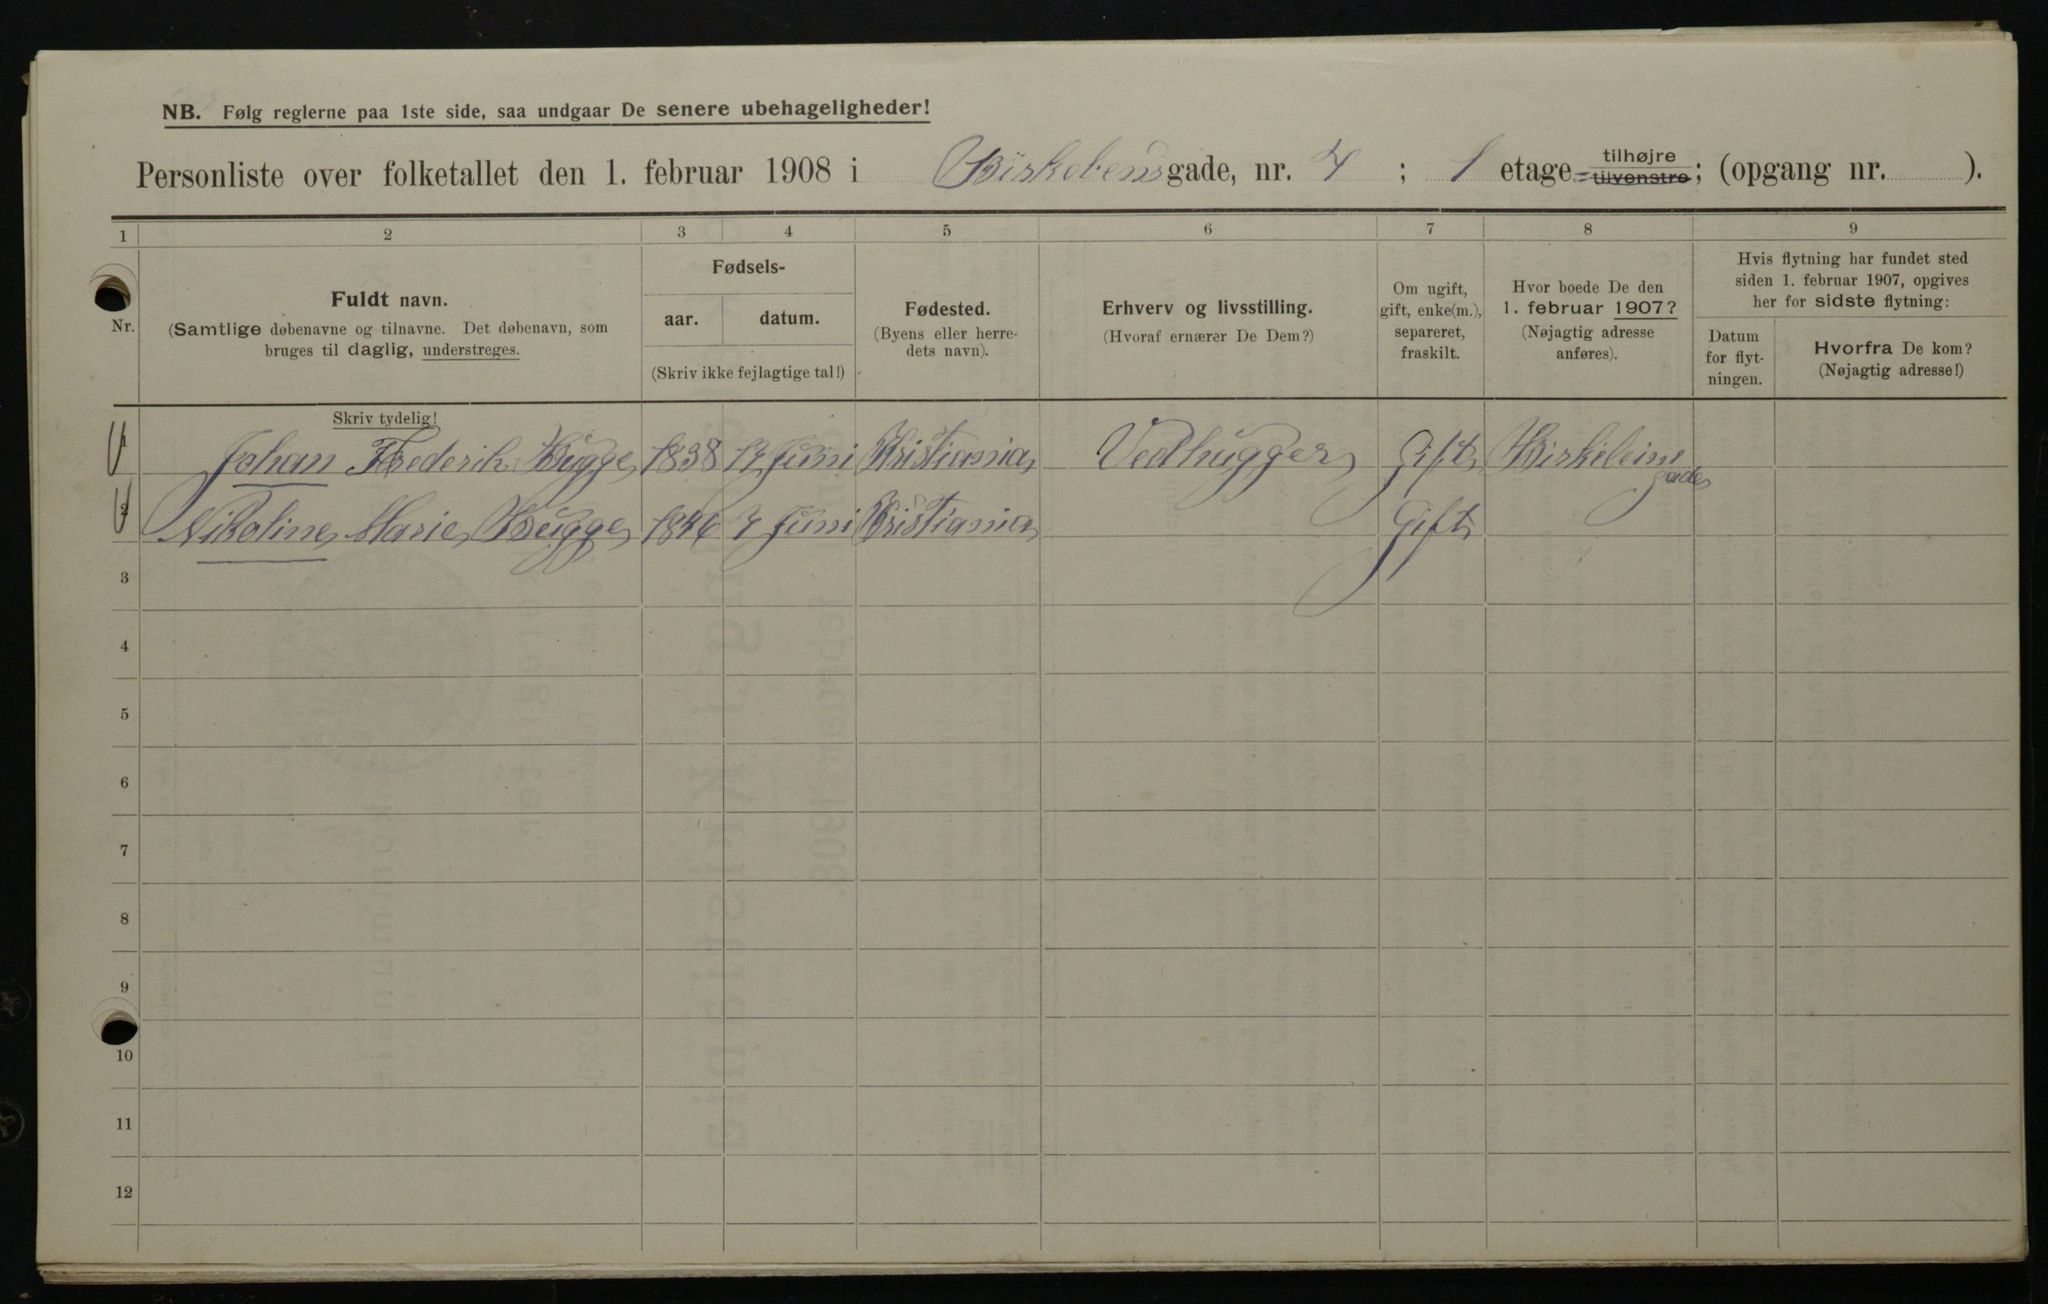 NB. Følg reglerne paa 1ste side, saa undgaar De senere ubehageligheder!
Personliste over folketallet den 1. februar 1908 i Birkebensgade, nr. 7 ; 1 etage tilhøjre tilvenstre; (opgang nr. ).
1 2 3 4 5 6 7 8 9
Nr.
Fuldt navn.
(Samtlige døbenavne og tilnavne. Det døbenavn, som
bruges til daglig, understreges.
Skriv tydelig!
Fødsels-
aar. datum.
(Skriv ikke fejlagtige tal!)
Fødested.
(Byens eller herre-
dets navn).
Erhverv og livsstilling.
(Hvoraf ernærer De Dem?)
Om ugift,
gift, enke(m.),
separeret,
fraskilt.
Hvor boede De den
1. februar 1907?
(Nøjagtig adresse
anføres).
Hvis flytning har fundet sted
siden 1. februar 1907, opgives
her for sidste flytning:
Datum
for flyt-
ningen.
Hvorfra De kom?
(Nøjagtig adresse!)
1 Johan Frederik Bugge 1838 17 Juni Kristiania Vedhugger Gift Birkebeinergade
2 Nikoline Marie Bugge 1846 7 Juni Kristiania Gift
3
4
5
6
7
8
9
10
11
12